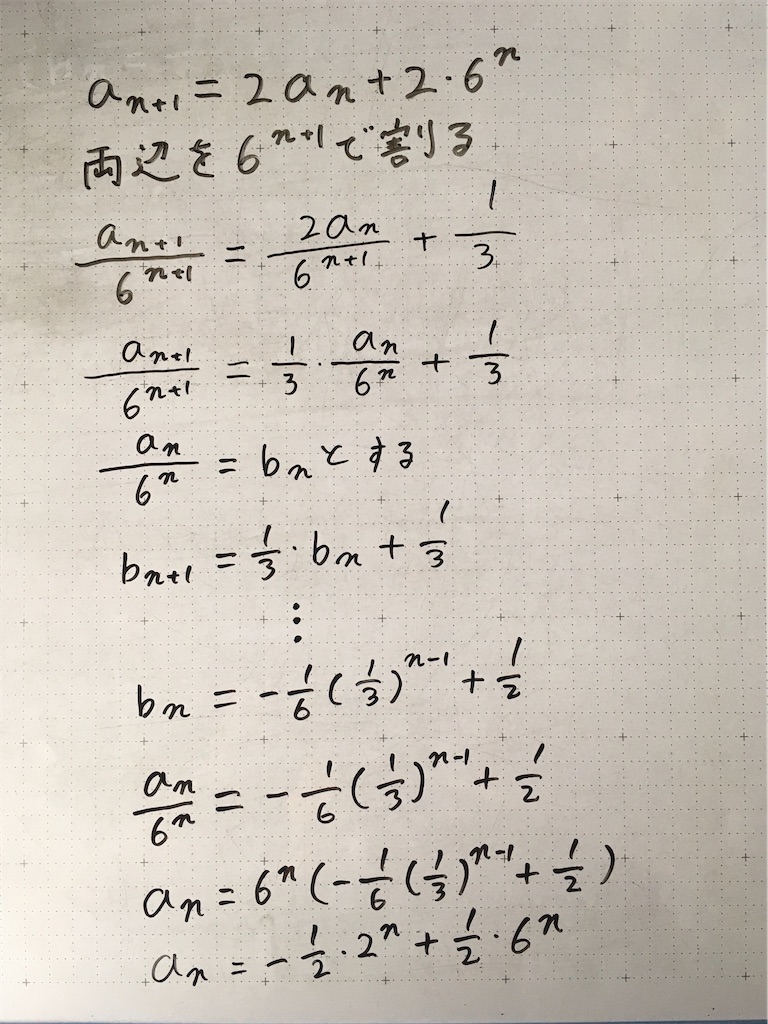 a_{n+1} = 2a_n + 2・6^n
両辺を6^{n+1}で割る
\frac{a_{n+1}}{6^{n+1}} = \frac{2a_n}{6^{n+1}} + \frac{1}{3}
\frac{a_{n+1}}{6^{n+1}} = \frac{1}{3}・\frac{a_n}{6^n} + \frac{1}{3}
\frac{a_n}{6^n} = b_nとする
b_{n+1} = \frac{1}{3}・b_n + \frac{1}{3}
⋮
b_n = -\frac{1}{6}(\frac{1}{3})^{n-1} + \frac{1}{2}
\frac{a_n}{6^n} = -\frac{1}{6}(\frac{1}{3})^{n-1} + \frac{1}{2}
a_n = 6^n(-\frac{1}{6}(\frac{1}{3})^{n-1} + \frac{1}{2})
a_n = -\frac{1}{2}・2^n + \frac{1}{2}・6^n